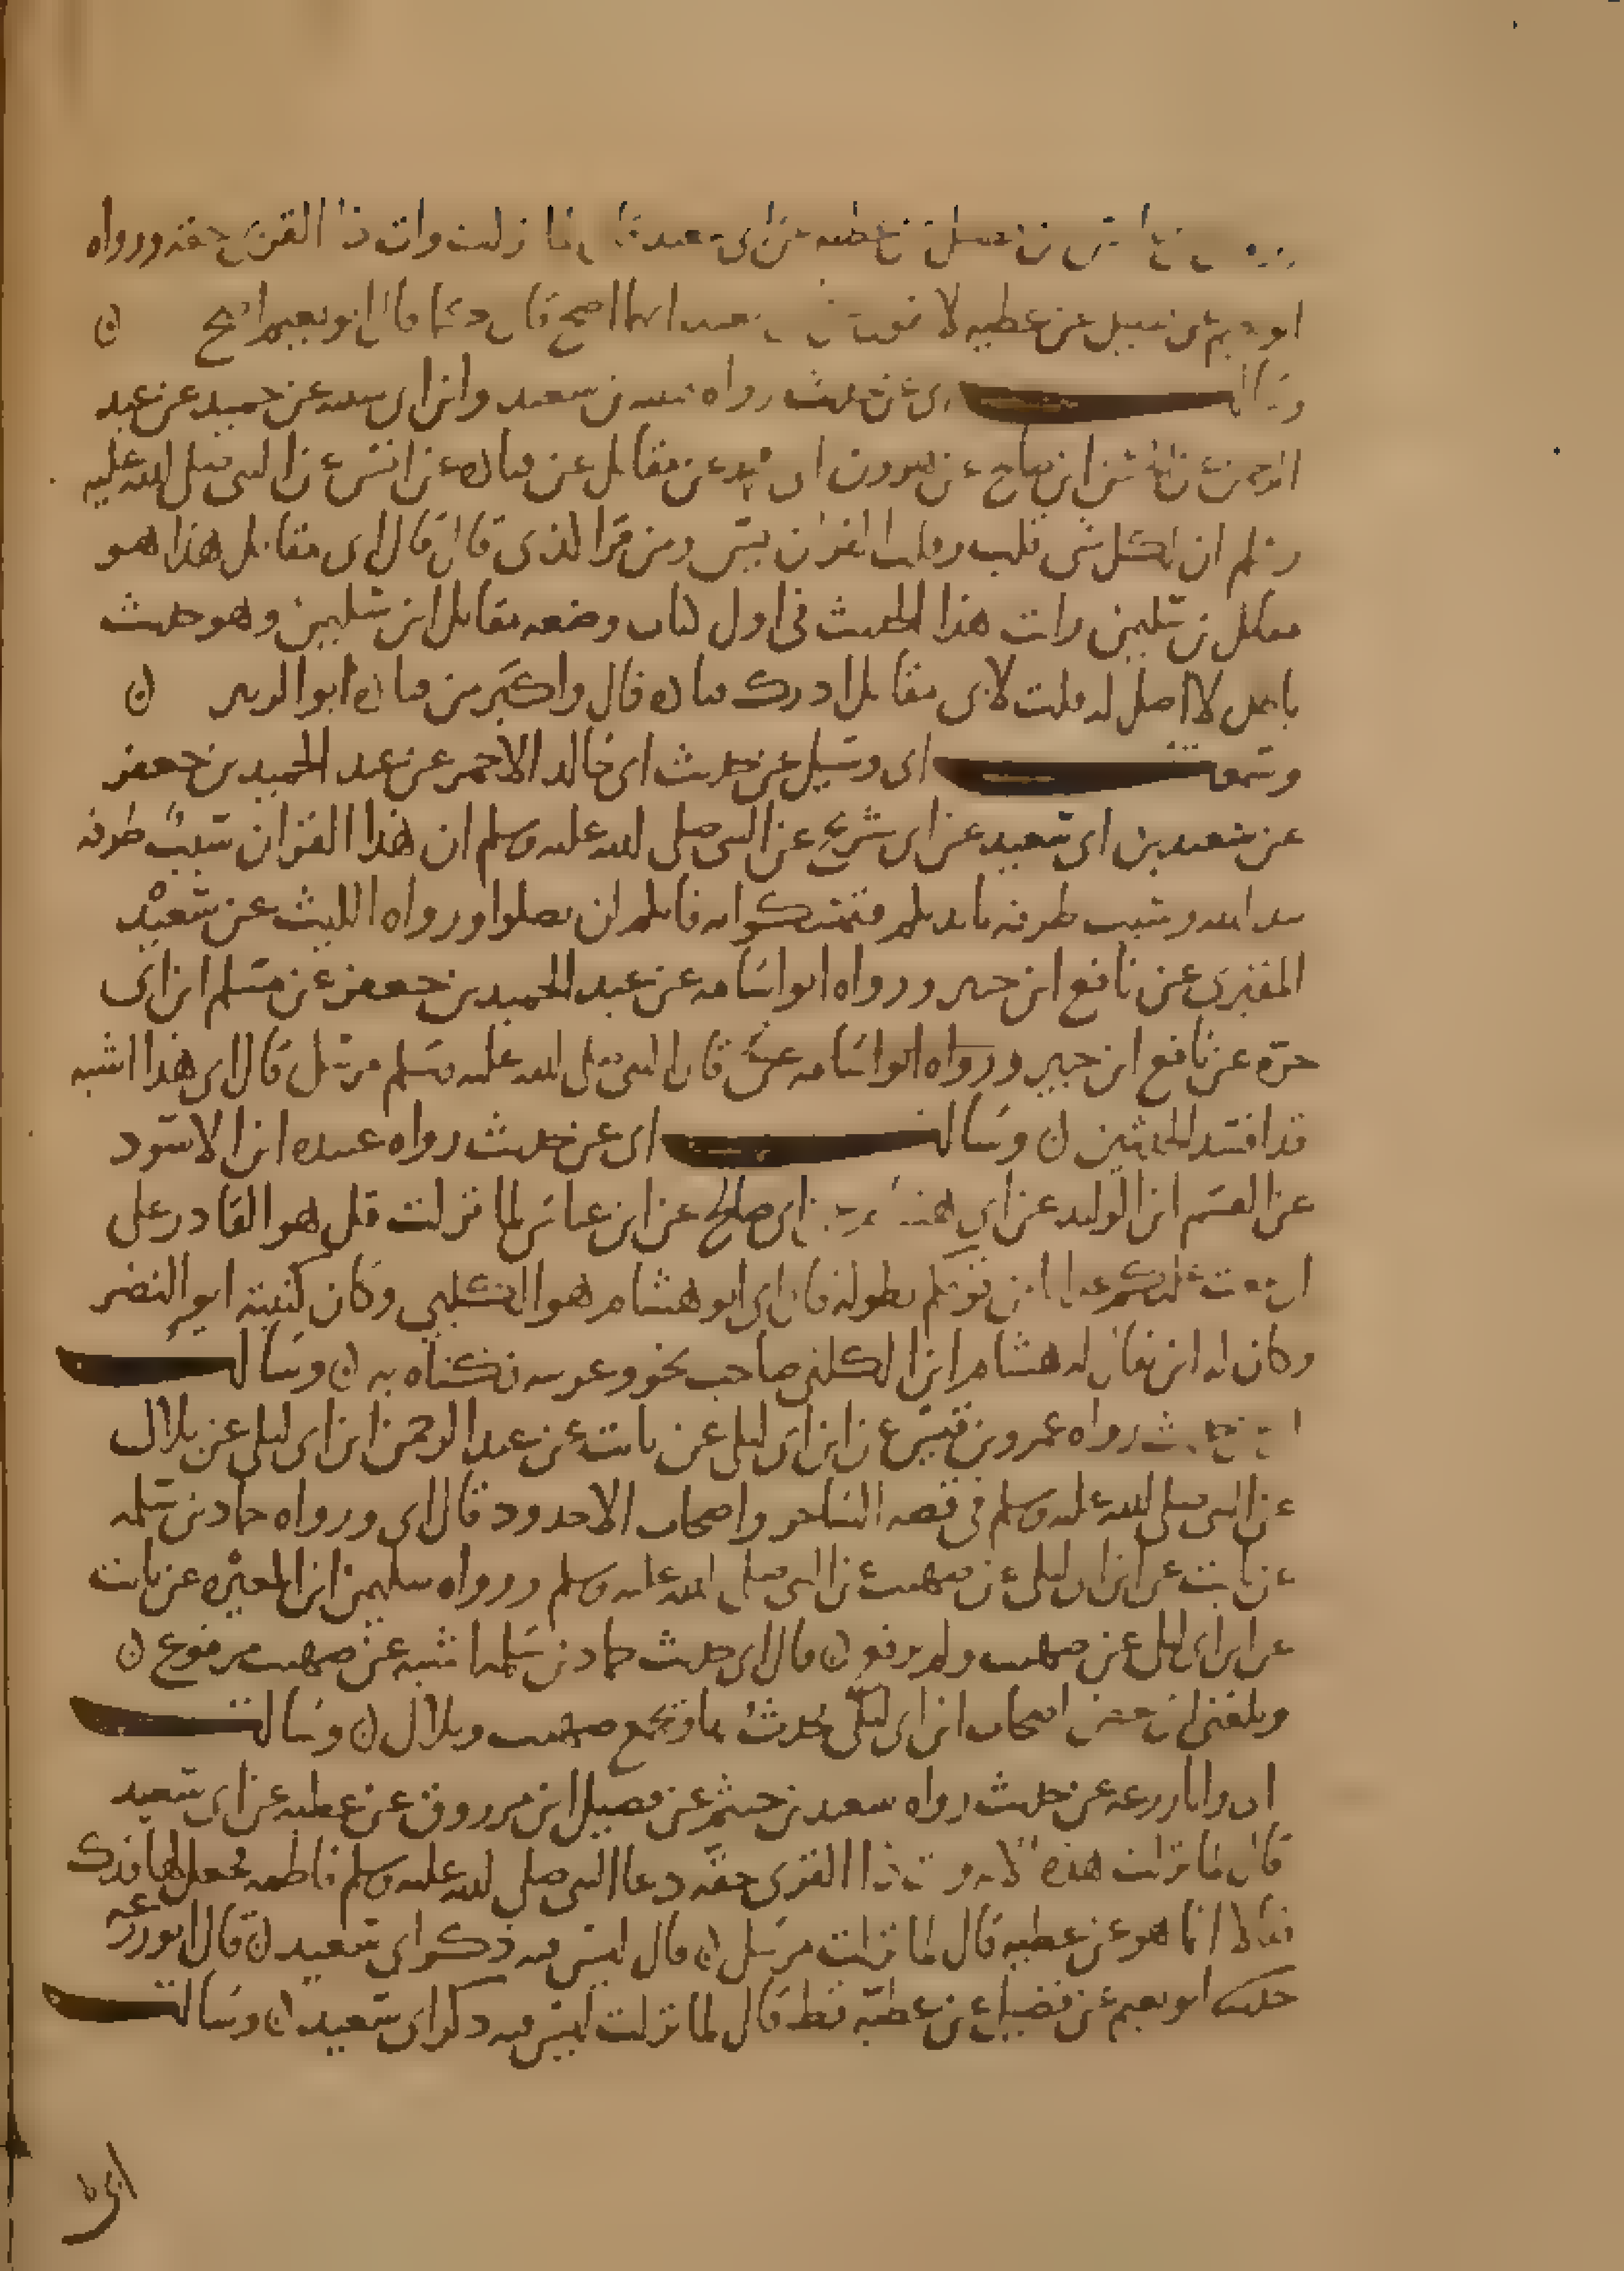 عن فضيل عن عطيه عن ابى سعيد قال لما نزلت وات ذا القربى حقه ورواه
ابو نعيم عن فضيل عن عطيه لا يقول عن ابى سعيد ايهما اصح قال كما قال ابو نعيم اصح ن
وسالت ابى عن حديث رواه قتيبه بن سعيد وابن ابى شيبه عن حميد عن عبد
الرحمن عن الحسن ابن صالح عن هرون ابى محمد عن مقاتل عن قتاده عن انس عن النبى صلى الله عليه
وسلم ان لكل شى قلب وقلب القران يس ومن قرا الذى قال قال ابى مقاتل هذا هو
مقاتل بن سليمن رايت هذا الحديث فى اول كتاب وضعه مقاتل ابن سليمن وهو حديث
باطل لا اصل له قلت لابى مقاتل ادرك قتاده قال واكبر من قتاده ابو الزبير ن
وسمعت ابى وسيل عن حديث ابى خالد الاحمر عن عبد الحميد بن جعفر
عن سعيد بن ابى سعيد عن ابى شريح عن النبى صلى الله عليه وسلم ان هذا القران سبب طرفه
بيد الله وسبب طرفه بايديكم فتمسكوا به فانكم لن تضلوا ورواه الليث عن سعيد
المقبرى عن نافع ابن جبير ورواه ابو اسامه عن عبد الحميد بن جعفر عن مسلم ابن ابى
حرة عن نافع ابن جبير ورواه ابو اسامه عن قال النبى صلى الله عليه وسلم مرسل قال ابى هذا اشبه
قد افسد الحديثين ن وسالت ابى عن حديث رواه عبيده ابن الاسود
عن القسم ابن الوليد عن ابى هشام عن ابى صالح عن ابن عباس لما نزلت قل هو القادر على
ان يبعث عليكم عذابا من فوقكم بطوله قال ابى ابو هشام هو الكلبي وكان كنيته ابو النضر
وكان له ابن يقال له هشام ابن الكلبي صاحب نحو وعربيه فكناه به ن وسالت
ابى عن حديث رواه عمرو بن قيس عن ابن ابى ليلى عن ثابت عن عبد الرحمن ابن ابى ليلى عن بلال
عن النبى صلى الله عليه وسلم فى قصه الساحر واصحاب الاخدود قال ابى ورواه حماد بن سلمه
عن ثابت عن ابن ابى ليلى عن صهيب عن النبى صلى الله عليه وسلم ورواه سليمن ابن المغيره عن ثابت
عن ابن ابى ليلى عن صهيب ولم يرفعه ن قال ابى حديث حماد بن سلمه اشبه عن صهيب مرفوع ن
وبلغنى ان بعض اصحاب ابن ابى ليلى يحدث بها ويجمع صهيب وبلال ن وسالت
ابى وابا زرعه عن حديث رواه سعيد بن خثيم عن فضيل ابن مرزوق عن عطيه عن ابى سعيد
قال لما نزلت هذه الايه وات ذا القربى حقه دعا النبى صلى الله عليه وسلم فاطمه فجعل لها فدك
فقالا انما هو عن عطيه قال لما نزلت مرسل ن قال ليس فيه ذكر ابى سعيد ن قال ابو زرعه
حدثنا ابو نعيم عن فضيل عن عطية فقط قال لما نزلت ليس فيه ذكر ابى سعيد ن وسالت